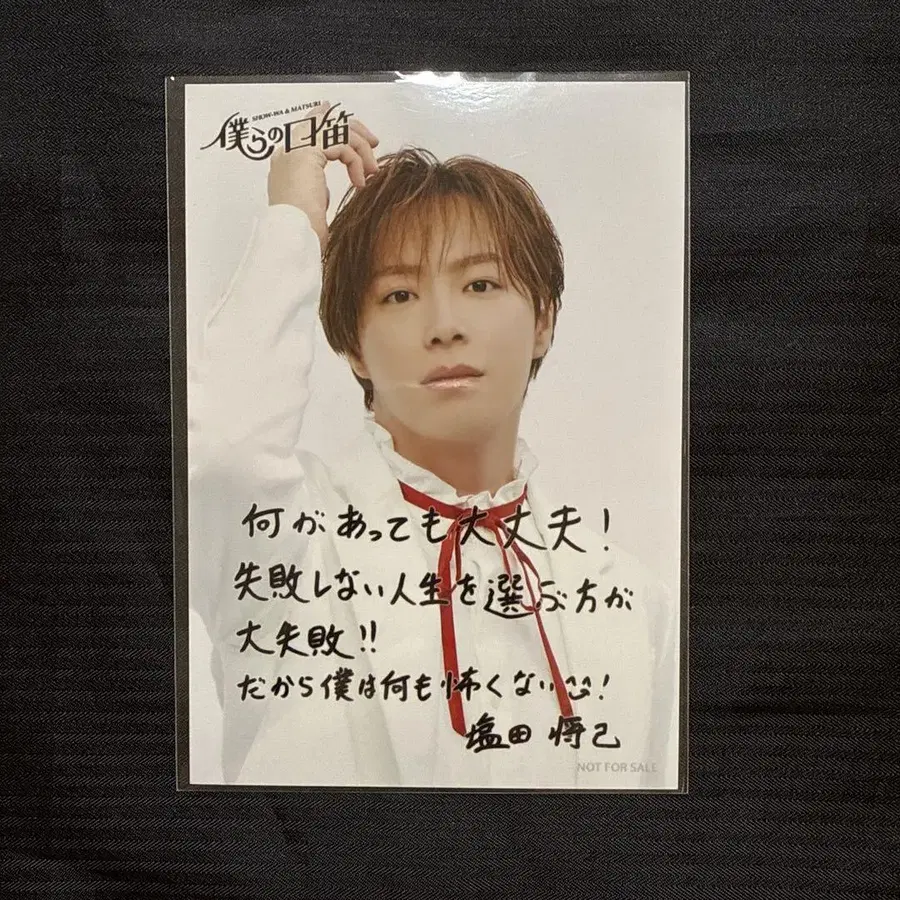 SHOW-WA & MATSURI
僕らの口笛
何があっても大丈夫！
失敗しない人生を選ぶ方が
大失敗!!
だから僕は何も怖くない^^!
塩田 将己
NOT FOR SALE